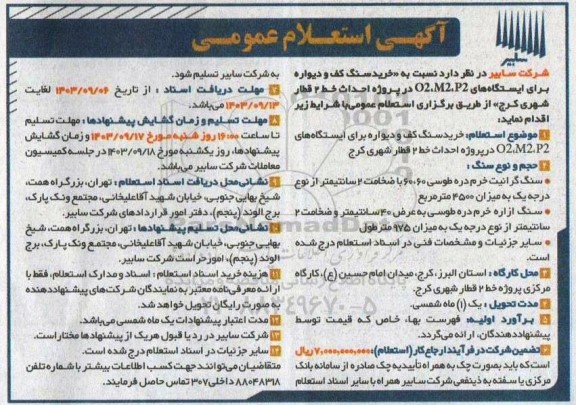 آگهی استعلام عمومی
سابیر
شرکت سابیر در نظر دارد نسبت به «خرید سنگ کف و دیواره
برای ایستگاه‌های O2،M2،P2 در پروژه احداث خط ۲ قطار
شهری کرج» از طریق برگزاری استعلام عمومی با شرایط زیر
اقدام نماید:
۱ موضوع استعلام: خرید سنگ کف و دیواره برای ایستگاه‌های
O2،M2،P2 در پروژه احداث خط ۲ قطار شهری کرج
۲ حجم و نوع سنگ:
● سنگ گرانیت خرم دره طوسی ۶۰×۶۰ با ضخامت ۲ سانتیمتر از نوع
درجه یک به میزان ۴۵۰۰ مترمربع
● سنگ ازاره خرم دره طوسی به عرض ۴۰ سانتیمتر و ضخامت ۲
سانتیمتر از نوع درجه یک به میزان ۹۷۵ مترطول
● سایر جزئیات و مشخصات فنی در اسناد استعلام درج شده
است.
۳ محل کارگاه: استان البرز، کرج، میدان امام حسین (ع)، کارگاه
مرکزی پروژه خط ۲ قطار شهری کرج.
۴ مدت تحویل: یک (۱) ماه شمسی.
۵ برآورد اولیه: فهرست بها، خاص که قیمت توسط
پیشنهاددهندگان، ارائه می‌گردد.
۶ تضمین شرکت در فرآیند ارجاع کار (استعلام): ۷,۰۰۰,۰۰۰,۰۰۰ ریال
است که باید بصورت چک به همراه تأییدیه چک صادره از سامانه بانک
مرکزی یا سفته به ذینفعی شرکت سابیر همراه با سایر اسناد استعلام
به شرکت سابیر تسلیم شود.
۷ مهلت دریافت اسناد: از تاریخ ۱۴۰۳/۰۹/۰۶ لغایت
۱۴۰۳/۰۹/۱۳ می‌باشد.
۸ مهلت تسلیم و زمان گشایش پیشنهادها: مهلت تسلیم
تا ساعت ۱۶:۰۰ روز شنبه مورخ ۱۴۰۳/۰۹/۱۷ و زمان گشایش
پیشنهادها، روز یکشنبه مورخ ۱۴۰۳/۰۹/۱۸ در جلسه کمیسیون
معاملات شرکت سابیر می‌باشد.
۹ نشانی محل دریافت اسناد استعلام: تهران، بزرگراه همت،
شیخ بهایی جنوبی، خیابان شهید آقاعلیخانی، مجتمع ونک پارک،
برج الوند (پنجم)، دفتر امور قراردادهای شرکت سابیر.
۱۰ نشانی محل تسلیم پیشنهادها: تهران، بزرگراه همت، شیخ
بهایی جنوبی، خیابان شهید آقاعلیخانی، مجتمع ونک پارک، برج
الوند (پنجم)، امور حراست شرکت سابیر.
۱۱ هزینه خرید اسناد استعلام: اسناد و مدارک استعلام، فقط با
ارائه معرفی‌نامه معتبر به نمایندگان شرکت‌های پیشنهاددهنده
به صورت رایگان تحویل خواهد شد.
۱۲ مدت اعتبار پیشنهادات یک ماه شمسی می‌باشد.
۱۳ شرکت سابیر در رد یا قبول هر یک از پیشنهادها مختار است.
۱۴ سایر جزئیات در اسناد استعلام درج شده است.
متقاضیان می‌توانند جهت کسب اطلاعات بیشتر با شماره تلفن
۸۸۰۴۸۳۱۸ داخلی ۳۰۷ تماس حاصل فرمایند.